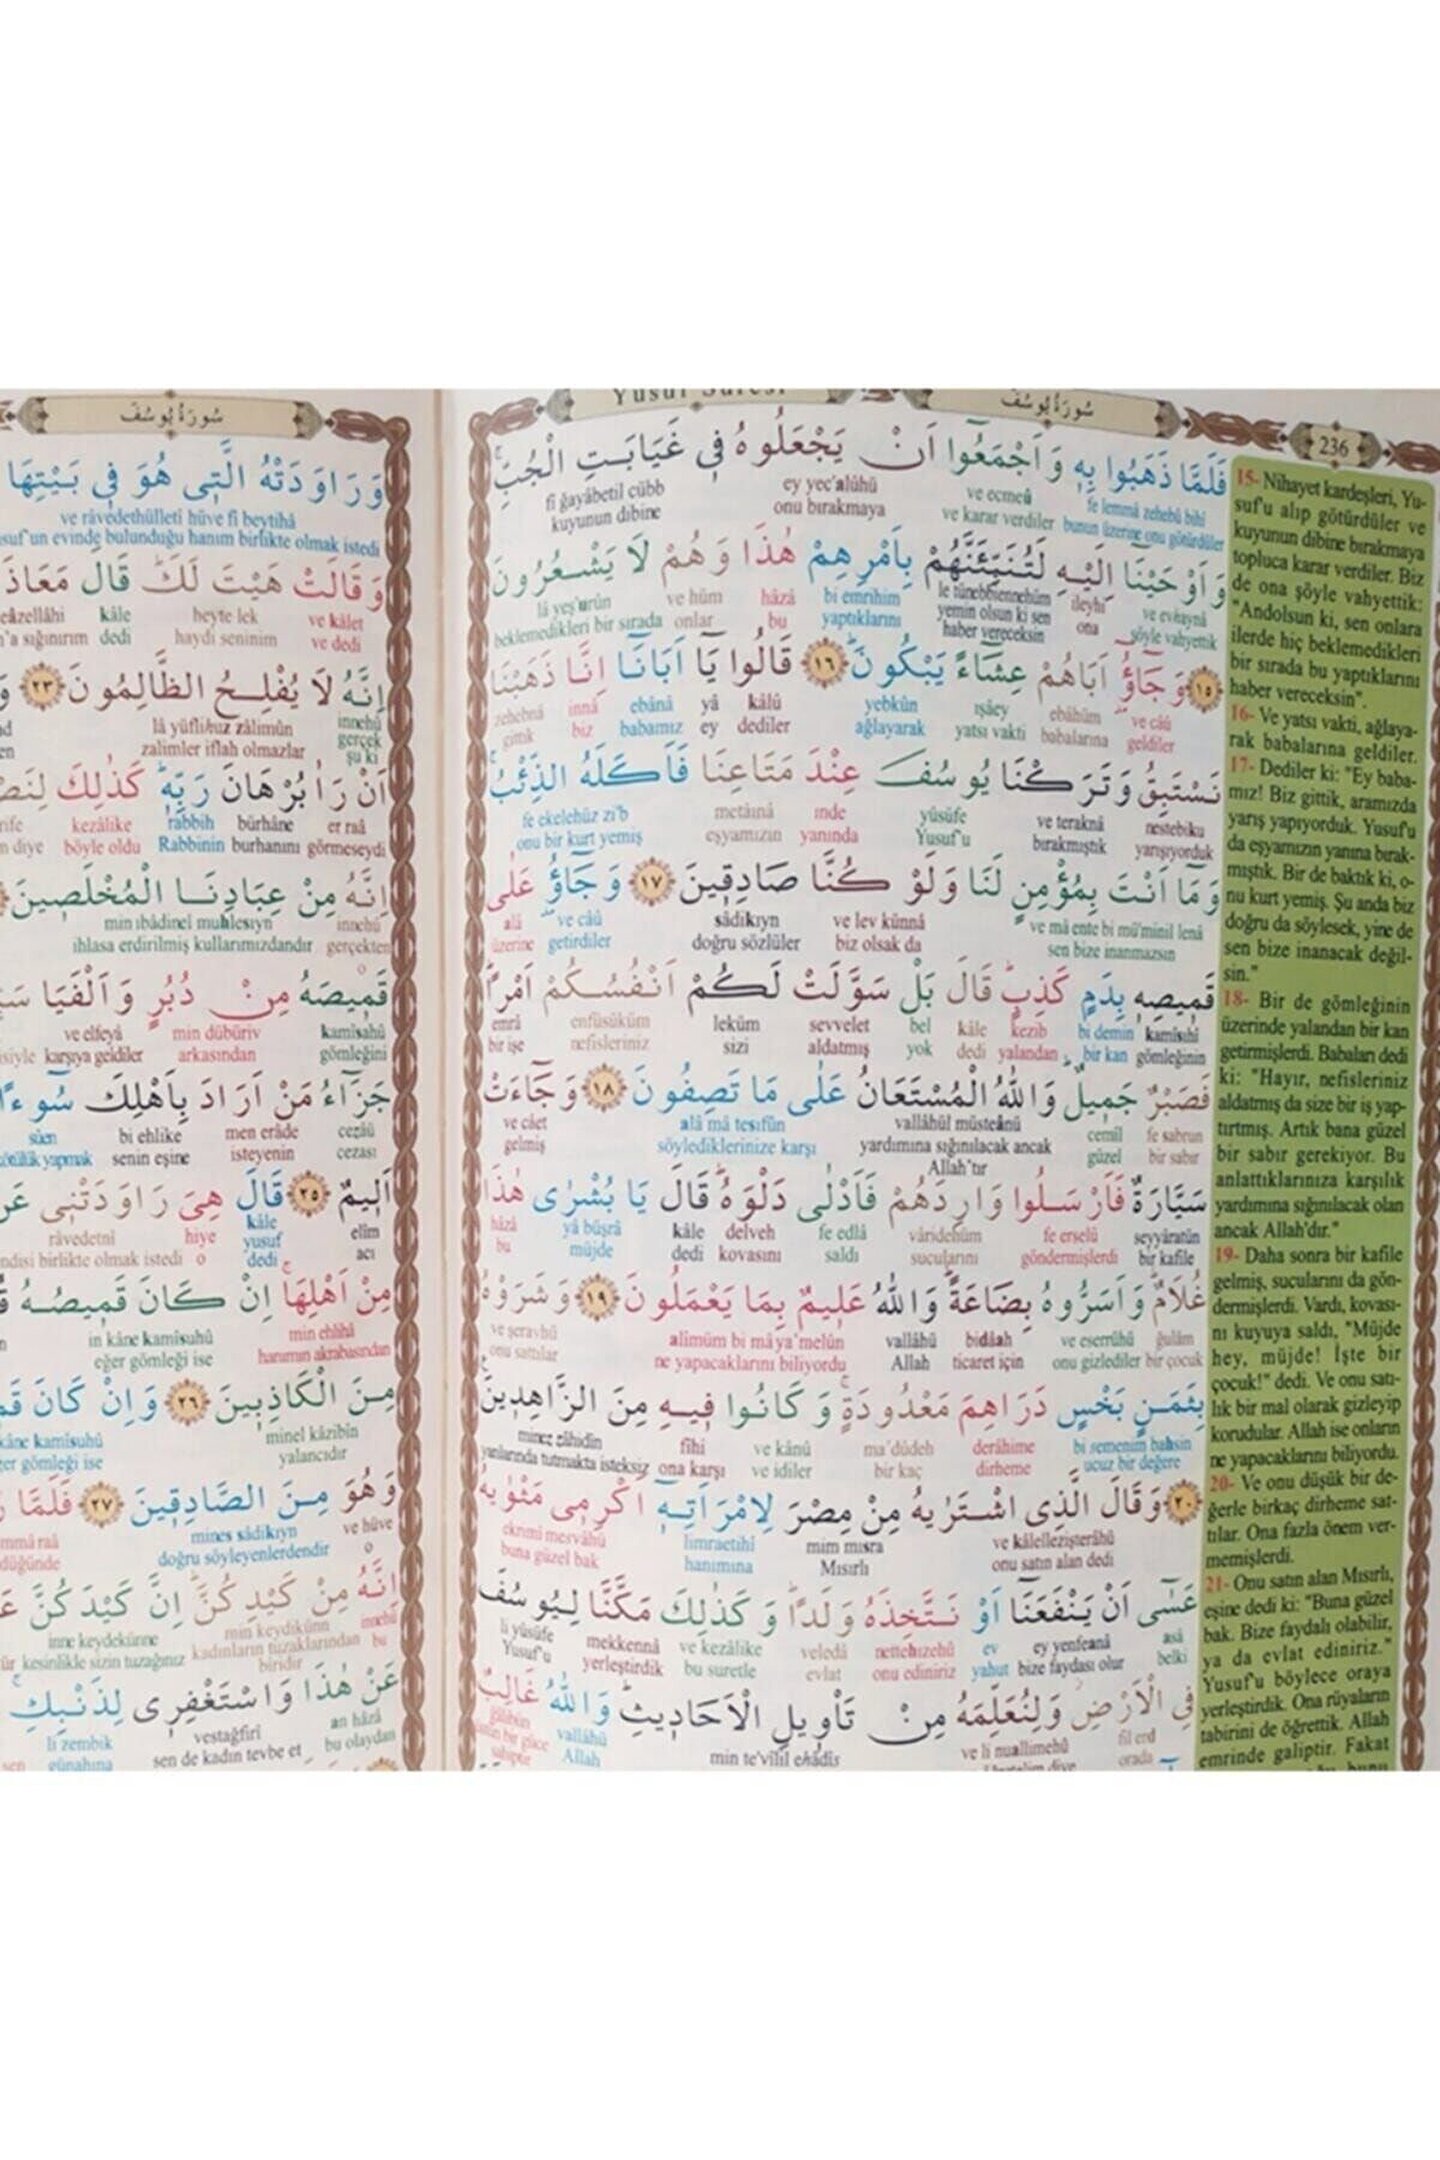 Yusuf Sûresi
سُورَةُ يُوسُفَ
236
فَلَمَّا ذَهَبُوا بِهِ وَاَجْمَعُٓوا اَنْ يَجْعَلُوهُ فِي غَيَابَتِ الْجُبِّۚ
fe lemmâ zehebû bihî ve ecmeû ey yec'alûhü fî ğayâbetil cübb
bunun üzerine onu götürdüler ve karar verdiler onu bırakmaya kuyunun dibine
وَاَوْحَيْنَٓا اِلَيْهِ لَتُنَبِّئَنَّهُمْ بِاَمْرِهِمْ هٰذَا وَهُمْ لَا يَشْعُرُونَ
ve evhaynâ ileyhi le tünebbiennehüm bi emrihim hâzâ ve hüm lâ yeş'urûn
şöyle vahyettik ona yemin olsun ki sen haber vereceksin yaptıklarını bu onlar beklemedikleri bir sırada
﴿١٥﴾ وَجَٓاؤُٓ اَبَاهُمْ عِشَٓاءً يَبْكُونَۜ ﴿١٦﴾ قَالُوا يَٓا اَبَانَٓا اِنَّا ذَهَبْنَا
ve câû ebâhüm ışâey yebkûn kâlû yâ ebânâ innâ zehebnâ
geldiler babalarına yatsı vakti ağlayarak dediler ey babamız biz gittik
نَسْتَبِقُ وَتَرَكْنَا يُوسُفَ عِنْدَ مَتَاعِنَا فَاَكَلَهُ الذِّئْبُۚ
nestebiku ve teraknâ yûsüfe ınde metâınâ fe ekelehüz zi'b
yarışıyorduk bırakmıştık Yusuf'u yanında eşyamızın onu bir kurt yemiş
وَمَٓا اَنْتَ بِمُؤْمِنٍ لَنَا وَلَوْ كُنَّا صَادِقِينَ ﴿١٧﴾ وَجَٓاؤُٓ عَلٰى
ve mâ ente bi mü'minil lenâ ve lev künnâ sâdikıyn ve câû alâ
sen bize inanmazsın biz olsak da doğru sözlüler getirdiler üzerine
قَمِيصِهِ بِدَمٍ كَذِبٍۜ قَالَ بَلْ سَوَّلَتْ لَكُمْ اَنْفُسُكُمْ اَمْرًاۜ
kamîsıhî bi demin kezib kâle bel sevvelet leküm enfüsüküm emrâ
gömleğinin bir kan yalandan dedi yok aldatmış sizi nefisleriniz bir işe
فَصَبْرٌ جَمِيلٌۜ وَاللّٰهُ الْمُسْتَعَانُ عَلٰى مَا تَصِفُونَ ﴿١٨﴾ وَجَٓاءَتْ
fe sabrun cemîl vallâhül müsteânü alâ mâ tesifûn ve câet
bir sabır güzel yardımına sığınılacak ancak Allah'tır söylediklerinize karşı gelmiş
سَيَّارَةٌ فَاَرْسَلُوا وَارِدَهُمْ فَاَدْلٰى دَلْوَهُۜ قَالَ يَا بُشْرٰى هٰذَا
seyyâratün fe erselû vâridehüm fe edlâ delveh kâle yâ büşrâ hâzâ
bir kafile göndermişlerdi sucularını saldı kovasını dedi müjde bu
غُلَامٌۜ وَاَسَرُّوهُ بِضَاعَةًۜ وَاللّٰهُ عَلِيمٌ بِمَا يَعْمَلُونَ ﴿١٩﴾ وَشَرَوْهُ
ğulâm ve eserrûhü bidâah vallâhü alîmüm bi mâ ya'melûn ve şeravhü
bir çocuk onu gizlediler ticaret için Allah ne yapacaklarını biliyordu onu sattılar
بِثَمَنٍ بَخْسٍ دَرَاهِمَ مَعْدُودَةٍۚ وَكَانُوا فِيهِ مِنَ الزَّاهِدِينَ۟
bi semenim bahsin derâhime ma'dûdeh ve kânû fîhi minez zâhidîn
ucuz bir değere dirheme bir kaç ve idiler ona karşı yanlarında tutmakta isteksiz
﴿٢٠﴾ وَقَالَ الَّذِي اشْتَرٰيهُ مِنْ مِصْرَ لِامْرَاَتِهٓ اَكْرِمِي مَثْوٰيهُ
ve kâlellezişterâhü mim mısra limraetihî ekrimî mesvâhü
onu satın alan dedi Mısırlı hanımına buna güzel bak
عَسٰٓى اَنْ يَنْفَعَنَٓا اَوْ نَتَّخِذَهُ وَلَدًاۜ وَكَذٰلِكَ مَكَّنَّا لِيُوسُفَ
asâ ey yenfeanâ ev nettehızehû veledâ ve kezâlike mekkennâ li yûsüfe
belki bize faydası olur yahut onu ediniriz evlat bu suretle yerleştirdik Yusuf'u
فِي الْاَرْضِ وَلِنُعَلِّمَهُ مِنْ تَأْوِيلِ الْاَحَادِيثِۜ وَاللّٰهُ غَالِبٌ
fil erd ve li nuallimehû min te'vîlil ehâdîs vallâhü
orada Allah
15- Nihayet kardeşleri, Yu-
suf'u alıp götürdüler ve
kuyunun dibine bırakmaya
topluca karar verdiler. Biz
de ona şöyle vahyettik:
"Andolsun ki, sen onlara
ilerde hiç beklemedikleri
bir sırada bu yaptıklarını
haber vereceksin".
16- Ve yatsı vakti, ağlaya-
rak babalarına geldiler.
17- Dediler ki: "Ey baba-
mız! Biz gittik, aramızda
yarış yapıyorduk. Yusuf'u
da eşyamızın yanına bırak-
mıştık. Bir de baktık ki, o-
nu kurt yemiş. Şu anda biz
doğru da söylesek, yine de
sen bize inanacak değil-
sin."
18- Bir de gömleğinin
üzerinde yalandan bir kan
getirmişlerdi. Babaları dedi
ki: "Hayır, nefisleriniz
aldatmış da size bir iş yap-
tırtmış. Artık bana güzel
bir sabır gerekiyor. Bu
anlattıklarınıza karşılık
yardımına sığınılacak olan
ancak Allah'dır."
19- Daha sonra bir kafile
gelmiş, sucularını da gön-
dermişlerdi. Vardı, kovası-
nı kuyuya saldı, "Müjde
hey, müjde! İşte bir
çocuk!" dedi. Ve onu satı-
lık bir mal olarak gizleyip
korudular. Allah ise onların
ne yapacaklarını biliyordu.
20- Ve onu düşük bir de-
ğerle birkaç dirheme sat-
tılar. Ona fazla önem ver-
memişlerdi.
21- Onu satın alan Mısırlı,
eşine dedi ki: "Buna güzel
bak. Bize faydalı olabilir,
ya da evlat ediniriz."
Yusuf'u böylece oraya
yerleştirdik. Ona rüyaların
tabirini de öğrettik. Allah
emrinde galiptir. Fakat
سُورَةُ يُوسُفَ
وَرَاوَدَتْهُ الَّتِي هُوَ فِي بَيْتِهَا
ve râvedethülletî hüve fî beytihâ
evinde bulunduğu hanım birlikte olmak istedi
وَقَالَتْ هَيْتَ لَكَۜ قَالَ مَعَاذَ
ve kâlet heyte lek kâle
ve dedi haydi seninim dedi sığınırım
اِنَّهُ لَا يُفْلِحُ الظَّالِمُونَ ﴿٢٣﴾
innehû lâ yüflihuz zâlimûn
gerçek şu ki zalimler iflah olmazlar
اَنْ رَاٰ بُرْهَانَ رَبِّهِۜ كَذٰلِكَ
er raâ bürhâne rabbih kezâlike
görmeseydi burhanını Rabbinin böyle oldu diye
اِنَّهُ مِنْ عِبَادِنَا الْمُخْلَصِينَ
innehû min ıbâdinel muhlesıyn
gerçekten ihlasa erdirilmiş kullarımızdandır
قَمِيصَهُ مِنْ دُبُرٍ وَاَلْفَيَا
kamîsahû min dübüriv ve elfeyâ
gömleğini arkasından karşıya geldiler
جَزَٓاءُ مَنْ اَرَادَ بِاَهْلِكَ سُٓوءًا
cezâü men erâde bi ehlike sûen
cezası isteyenin senin eşine kötülük yapmak
اَلِيمٌ ﴿٢٥﴾ قَالَ هِيَ رَاوَدَتْنِي
elîm kâle hiye râvedetnî
acı yusuf dedi o birlikte olmak istedi
مِنْ اَهْلِهَاۚ اِنْ كَانَ قَمِيصُهُ
min ehlihâ in kâne kamîsuhû
hanımın akrabasından eğer gömleği ise
مِنَ الْكَاذِبِينَ ﴿٢٦﴾ وَاِنْ كَانَ
minel kâzibîn kâne kamîsuhû
yalancıdır gömleği ise
وَهُوَ مِنَ الصَّادِقِينَ ﴿٢٧﴾ فَلَمَّا
ve hüve mines sâdikıyn
o doğru söyleyenlerdendir
اِنَّهُ مِنْ كَيْدِكُنَّۜ اِنَّ كَيْدَكُنَّ
innehû min keydikünn inne keydekünne
bu kadınların tuzaklarından biridir kesinlikle sizin tuzağınız
عَنْ هٰذَا وَاسْتَغْفِرِي لِذَنْبِكِۚ
an hâzâ vestağfirî li zembik
bu olaydan sen de kadın tevbe et günahına